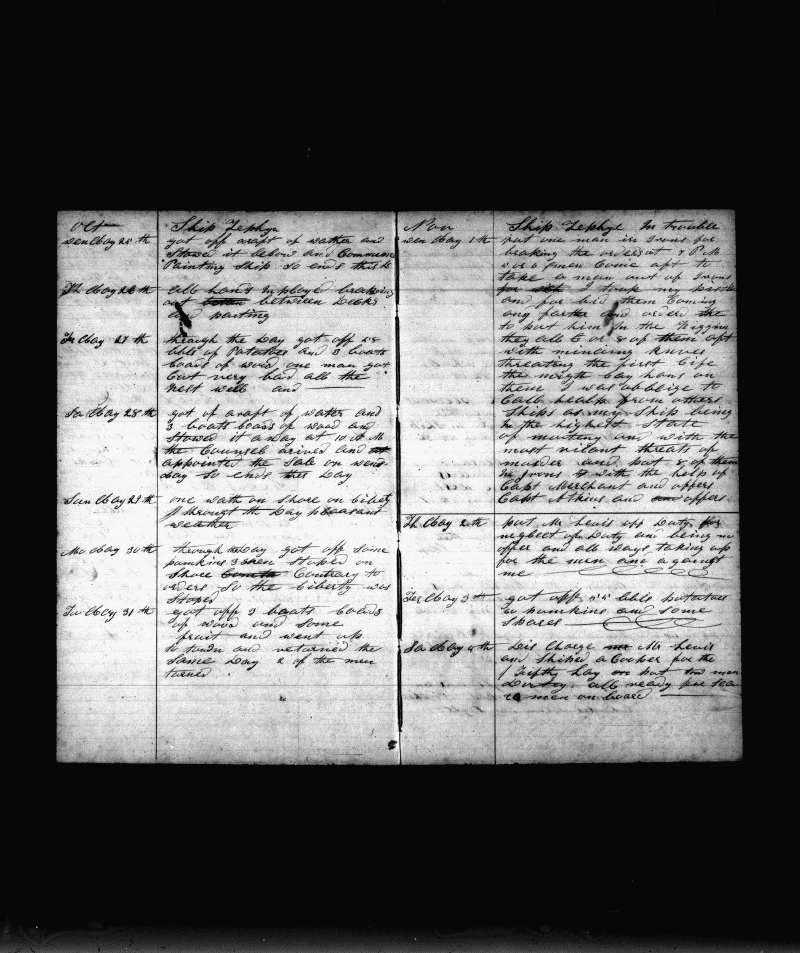 Oct Ship Zephyr
Wen Day 25 th got off araft of wather and
Stowed it belows and Commence
Painting Ship So ends this
Th Day 26 th all hands Inployed breaking
out between Decks
and painting
Fr Day 27 th through the Day got off 28
bbls of Potatoes and 3 boats
boads of wood one man got
Cut very bad all the
Rest well and
Sa Day 28 th got of araft of water and
3 boats boads of wood and
Stowed it a way at 10 A M
the Counsel arived and
appointed the Sale on wens
day So ends this Day
Sun Day 29 th one wath on Shore on liberty
through the Day pleasant
weather
Mo Day 30 th through the Day got off Some
pumkins 3 men Stoped on
Shore Contrary to
orders So the liberty was
Stoped
Tu Day 31 th got off 3 boats boads
of wood and Some
fruit and went up
to town and returned the
Same Day 2 of the men
turned
Nov Ship Zephyr In trouble
Wen Day 1 th put one man in Irons for
breaking the orders at 7 P M
men Come aft to
take a man out of Irons
I took my
and for bid them Coming
any farther and orderd
to put him In the Riggin
they all 6 or 8 of them aft
with mincing knives
threating the first life
that migth lay hans on
them I was obbeige to
Calb healp from others
Ships as my Ship being
In the highest State
of muteny and with the
most vilant threats of
murder and put 8 of them
In Irons with the help of
Capt Merchant and offers
Capt Atkins and offers
Th Day 2 th put Mr Lewis off Duty for
neglect of Duty and being no
offier and all ways taking up
for the men and against
me
Fri Day 3 th got off bbls potatoes
pumkins and Some
Spares
Sa Day 4 th Dis Charge Mr Lewis
and Shiped a Cooper for the
Fifty Lay put men
Duty all ready for Sea
men on board